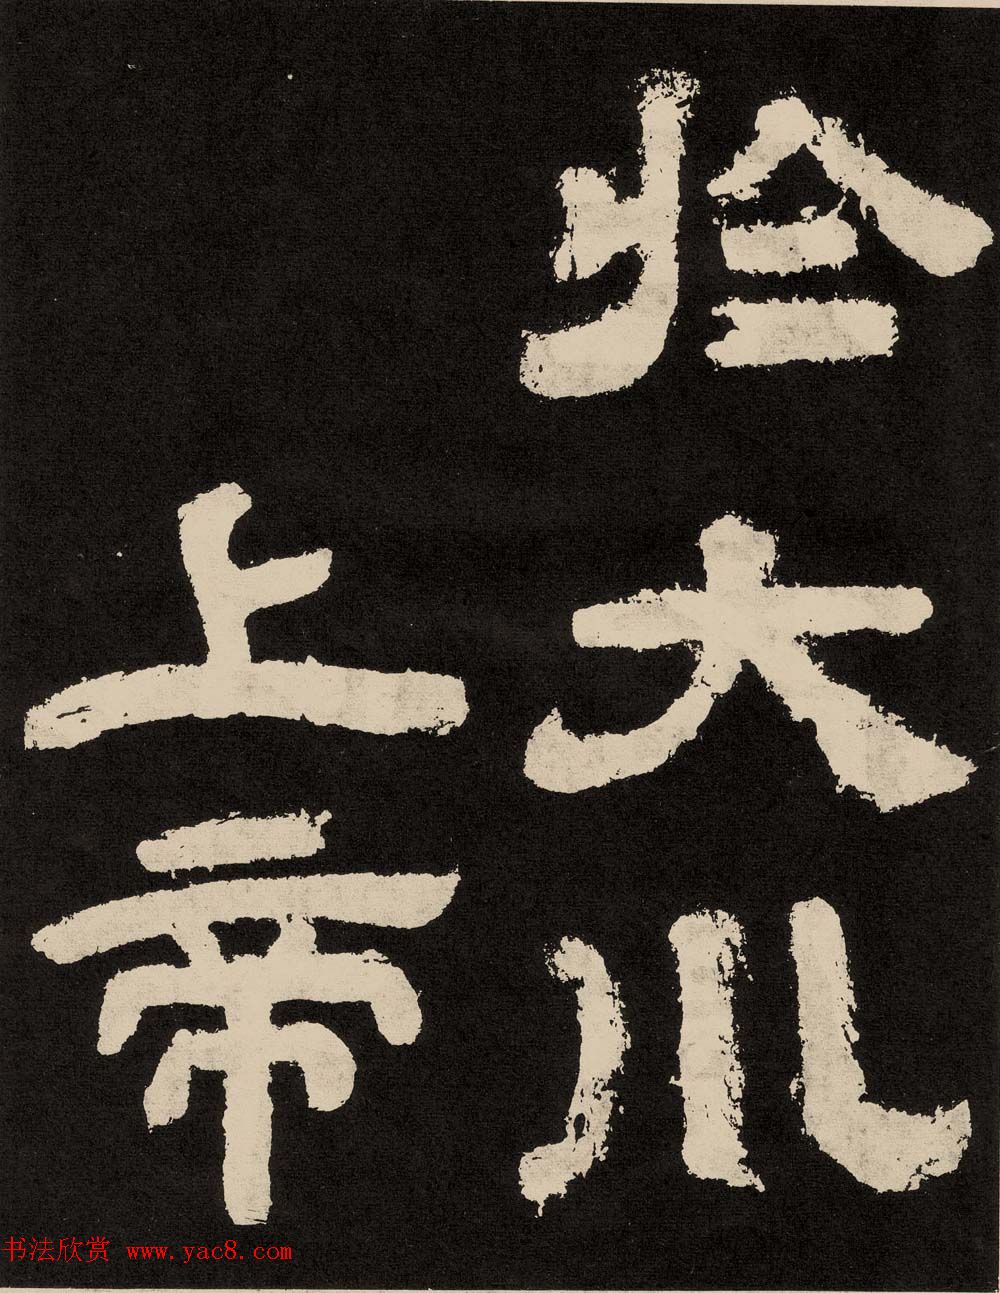 於大川
上帝
书法欣赏 www.yac8.com